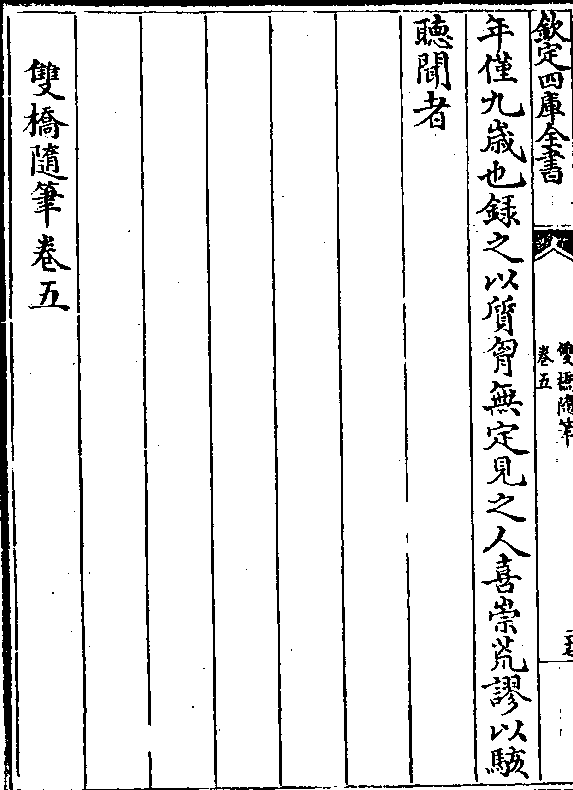 欽定四庫全書
雙橋隨筆
卷五
年僅九歲也録之以質胷無定見之人喜崇荒謬以駭
聽聞者
雙橋隨筆卷五